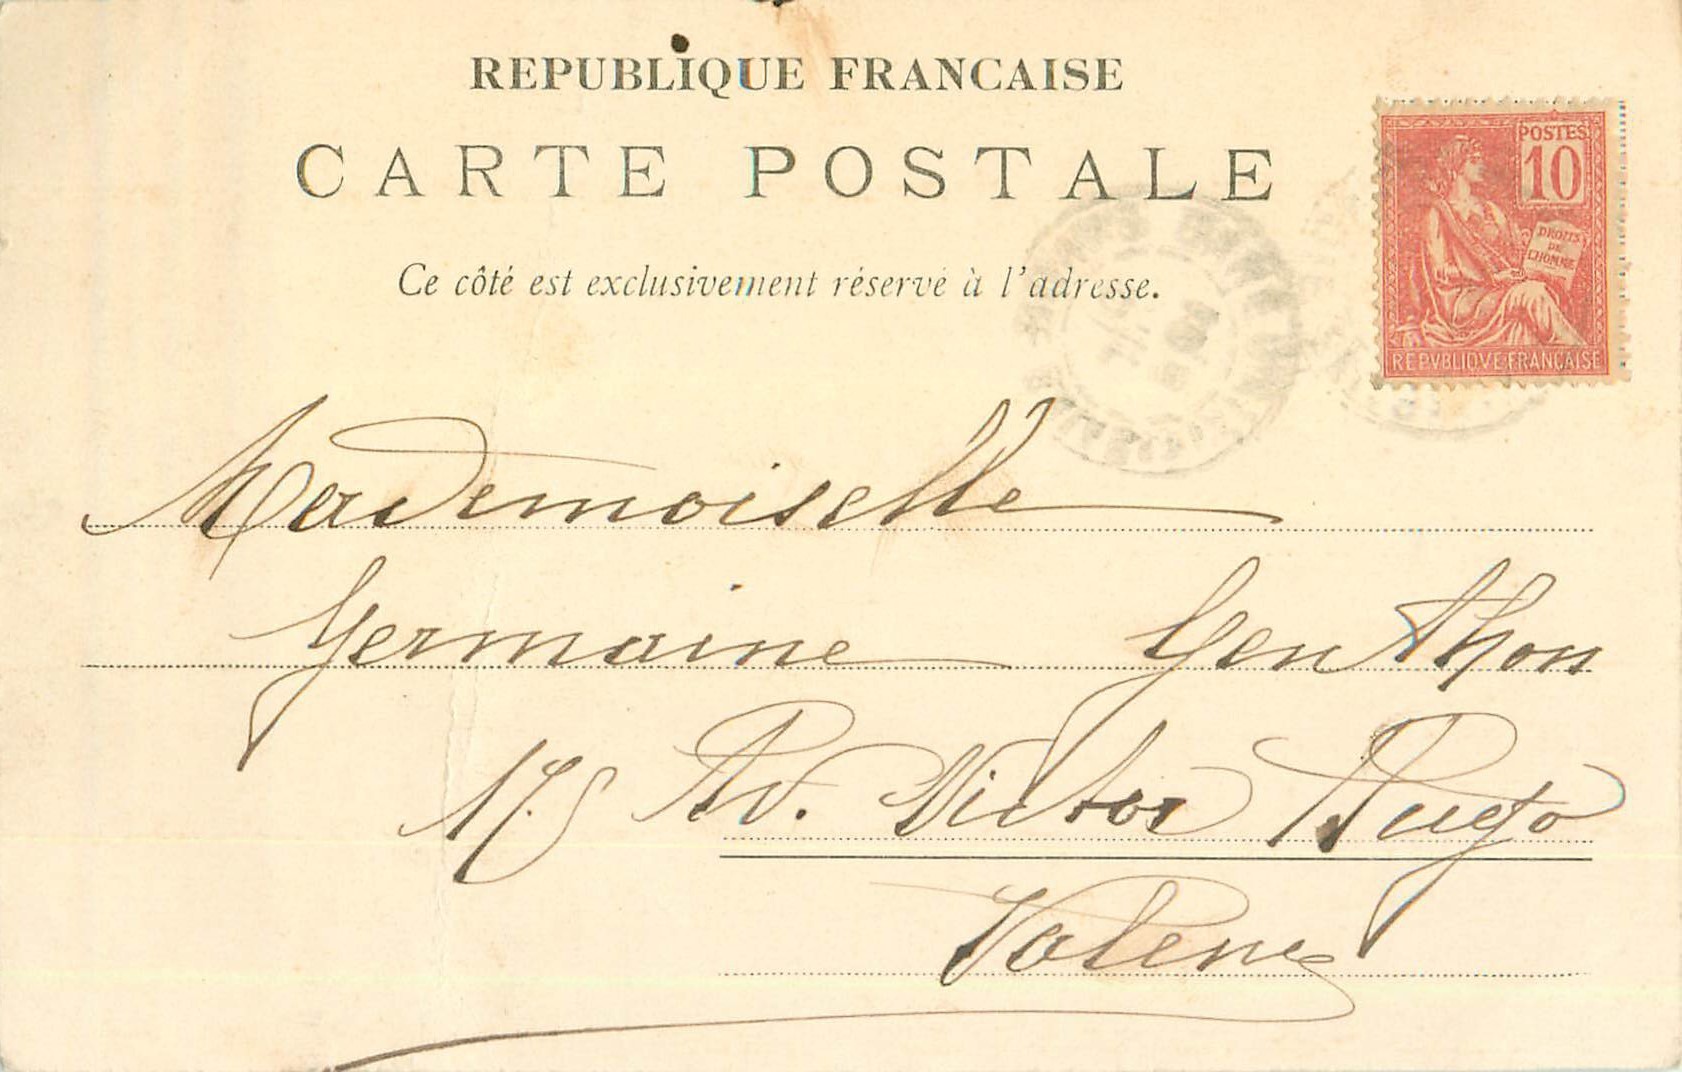 REPUBLIQUE FRANCAISE
CARTE POSTALE
Ce côté est exclusivement réservé à l'adresse.
POSTES
10
DROITS
DE
L'HOMME
REPVBLIQVE FRANÇAISE
Mademoiselle
Germaine Genthon
175 Av. Victor Hugo
Valence